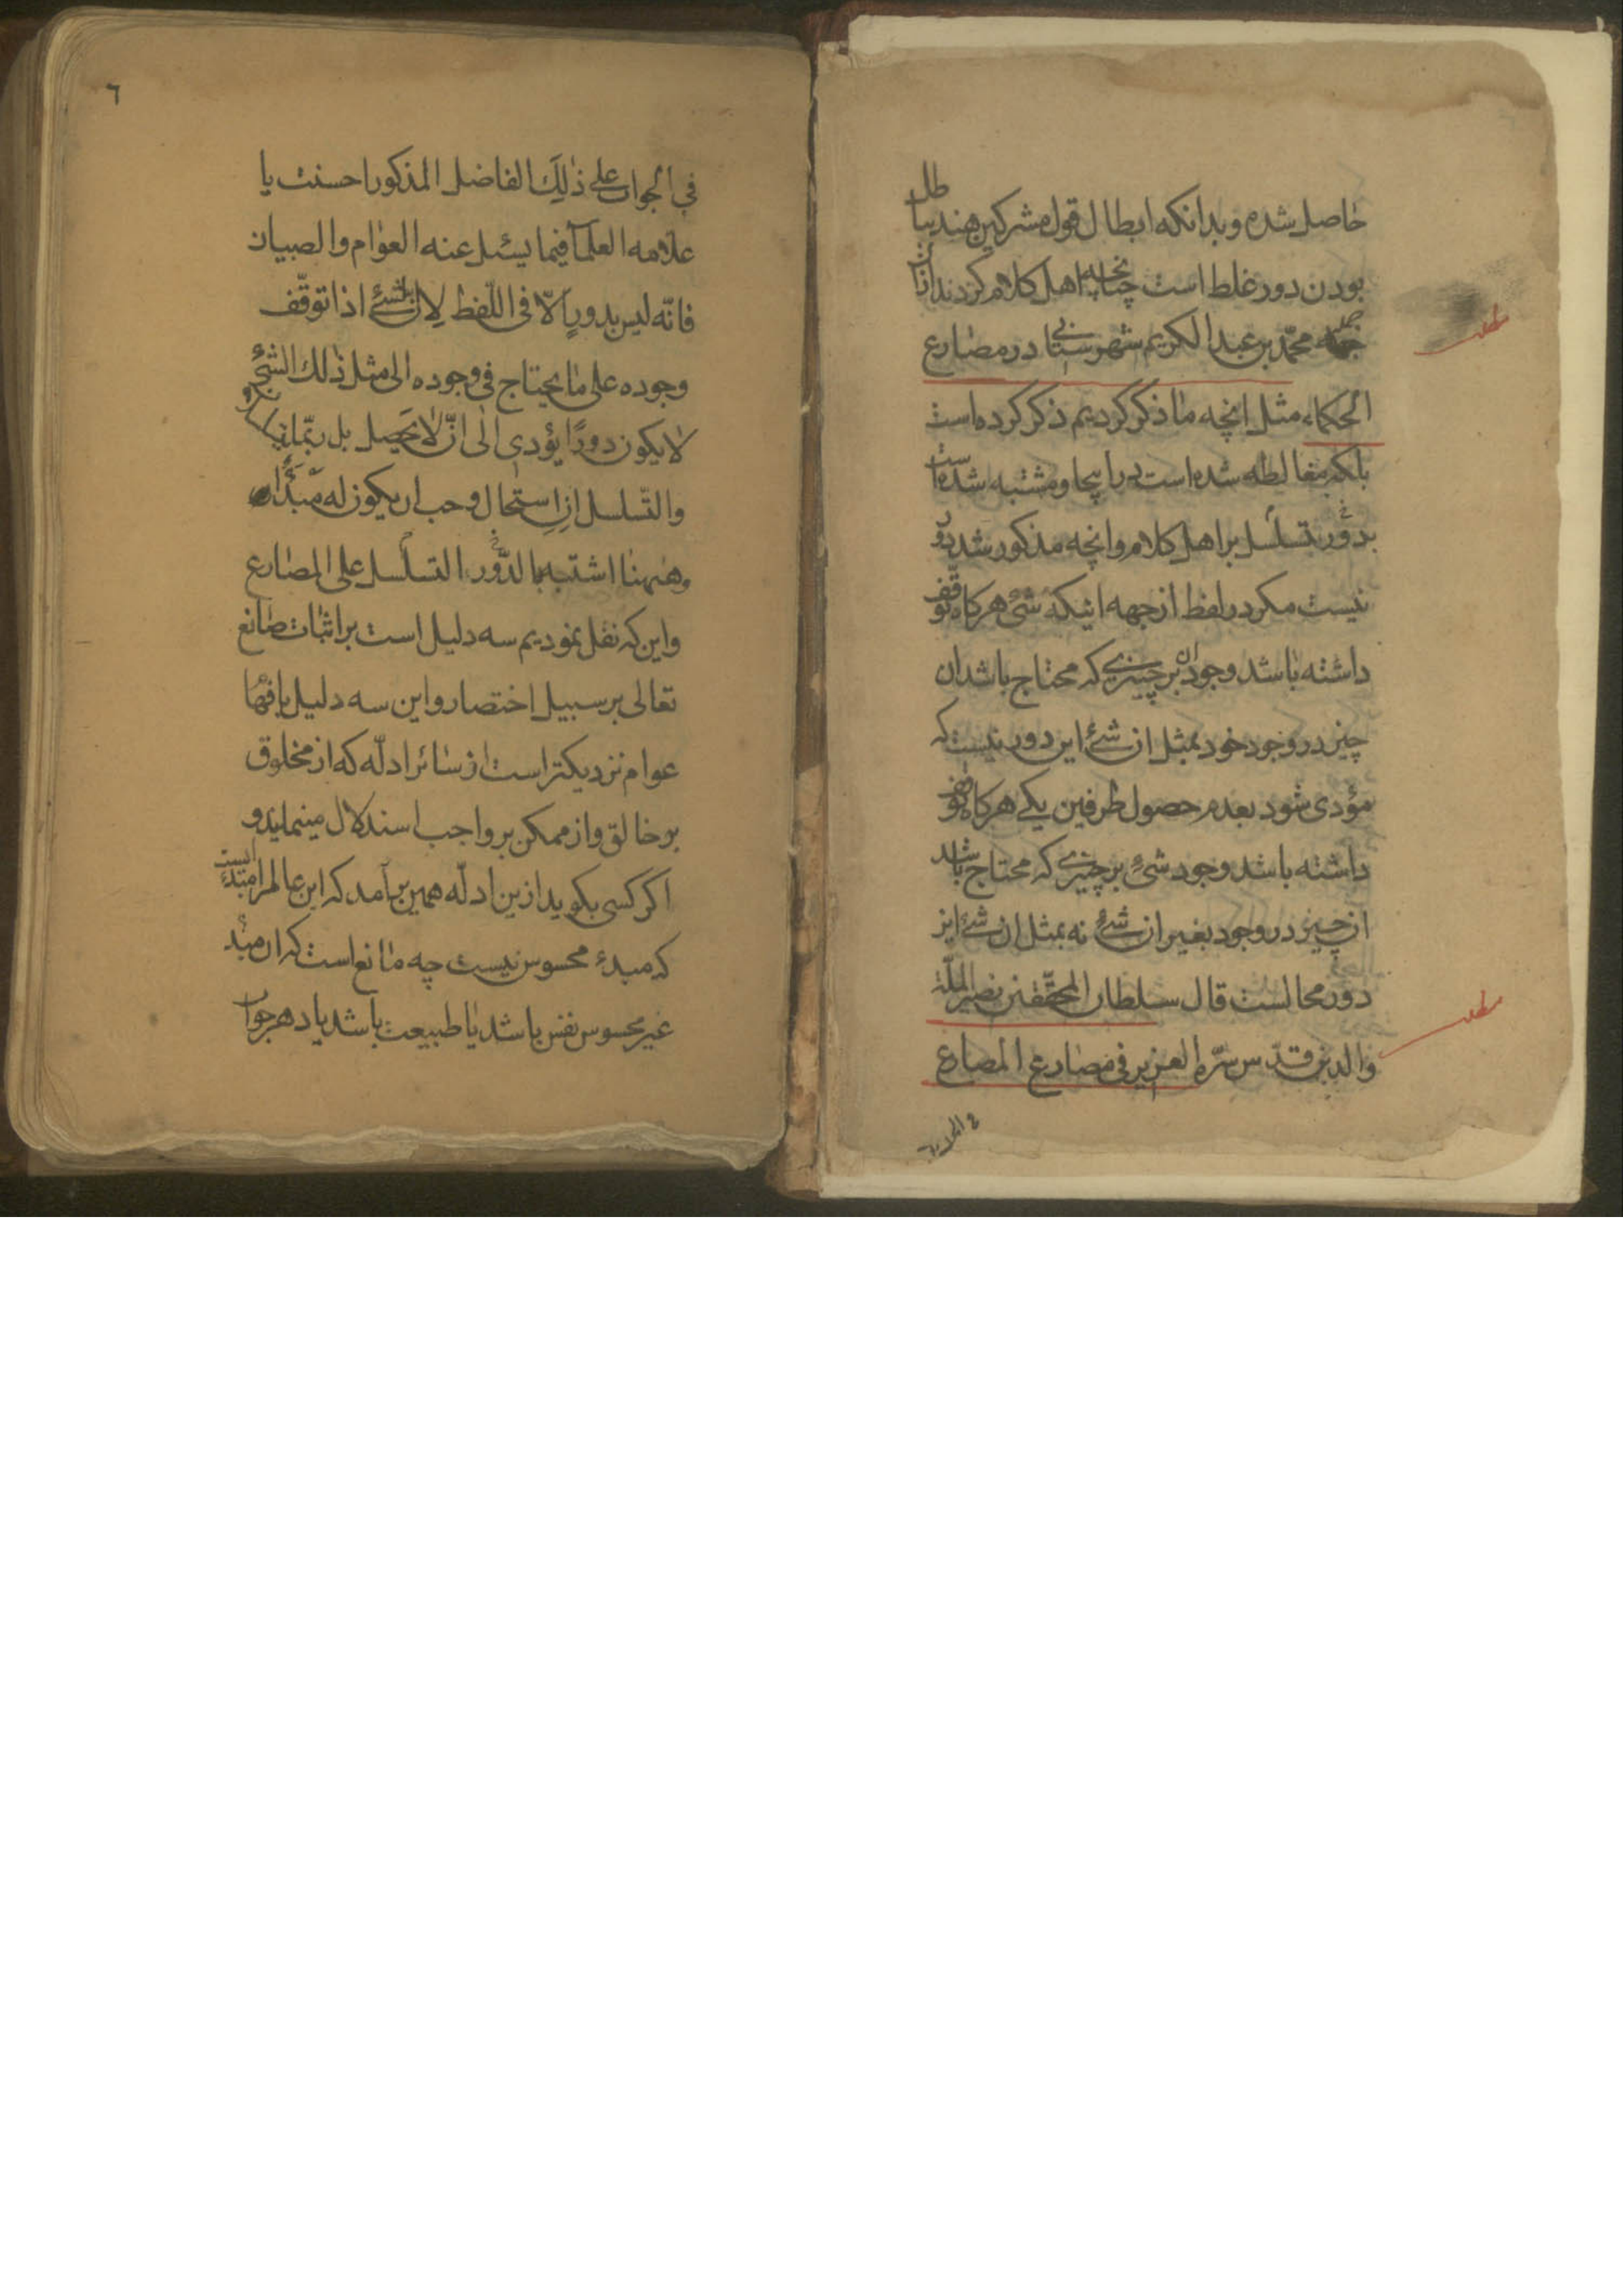 حاصل شده و بدانکه ابطال قول مشرکین هند بباطل
بودن دور غلط است چنانچه اهل کلام کردند از آن
جمله محمّد بن عبد الکریم شهرستانی در مصارع
الحکماء مثل انچه ما ذکر کردیم ذکر کرده است
بلکه مغالطه شده است در اینجا و مشتبه شده است
بدور تسلسل بر اهل کلام و انچه مذکور شد دور
نیست مکر در لفظ از جهه اینکه شئ هرکاه توقف
داشته باشد وجود ان بر چیزی که محتاج باشد ان
چیز در وجود خود بمثل ان شئ این دور نیست که
مؤدی شود بعدم حصول طرفین یکی هرکاه توقف
داشته باشد وجود شئ بر چیزی که محتاج باشد
ان چیز در وجود بغیر ان شئ نه بمثل ان شئ این
دور محالست قال سلطان المحقّقین نصیر الملّة
والدین قدّس سرّه العزیز فی مصارع المصارع
فی الجواب
٦
فی الجواب علی ذٰلِکَ الفاضل المذکور احسنت یا
علامه العلمآ فیما یسئل عنه العوام و الصبیان
فانّه لیس بدورٍ الّا فی اللّفظ لِان الشئ اذا توقّف
وجوده علی ما یحتاج فی وجوده الی مثل ذٰلک الشئ
لا یکون دورًا یؤدی الی انّ لا یحصل بل ربّما
والتّسلسل ان استحال وجب ان یکون له مبدأ
وهٰهنا اشتبه بالدّور التسلسل علی المصارع
واین که نقل نمودیم سه دلیل است بر اثبات صانع
تعالی بر سبیل اختصار و این سه دلیل بافهام
عوام نزدیکتر است از سائر ادلّه که از مخلوق
بر خالق و از ممکن بر واجب استدلال مینماید و
اکر کسی بکوید ازین ادلّه همین برآمد که این عالم را مبدئیست
که مبدء محسوس نیست چه مانع است که ان مبدء
غیر محسوس نفس باشد یا طبیعت باشد یا دهر جواب